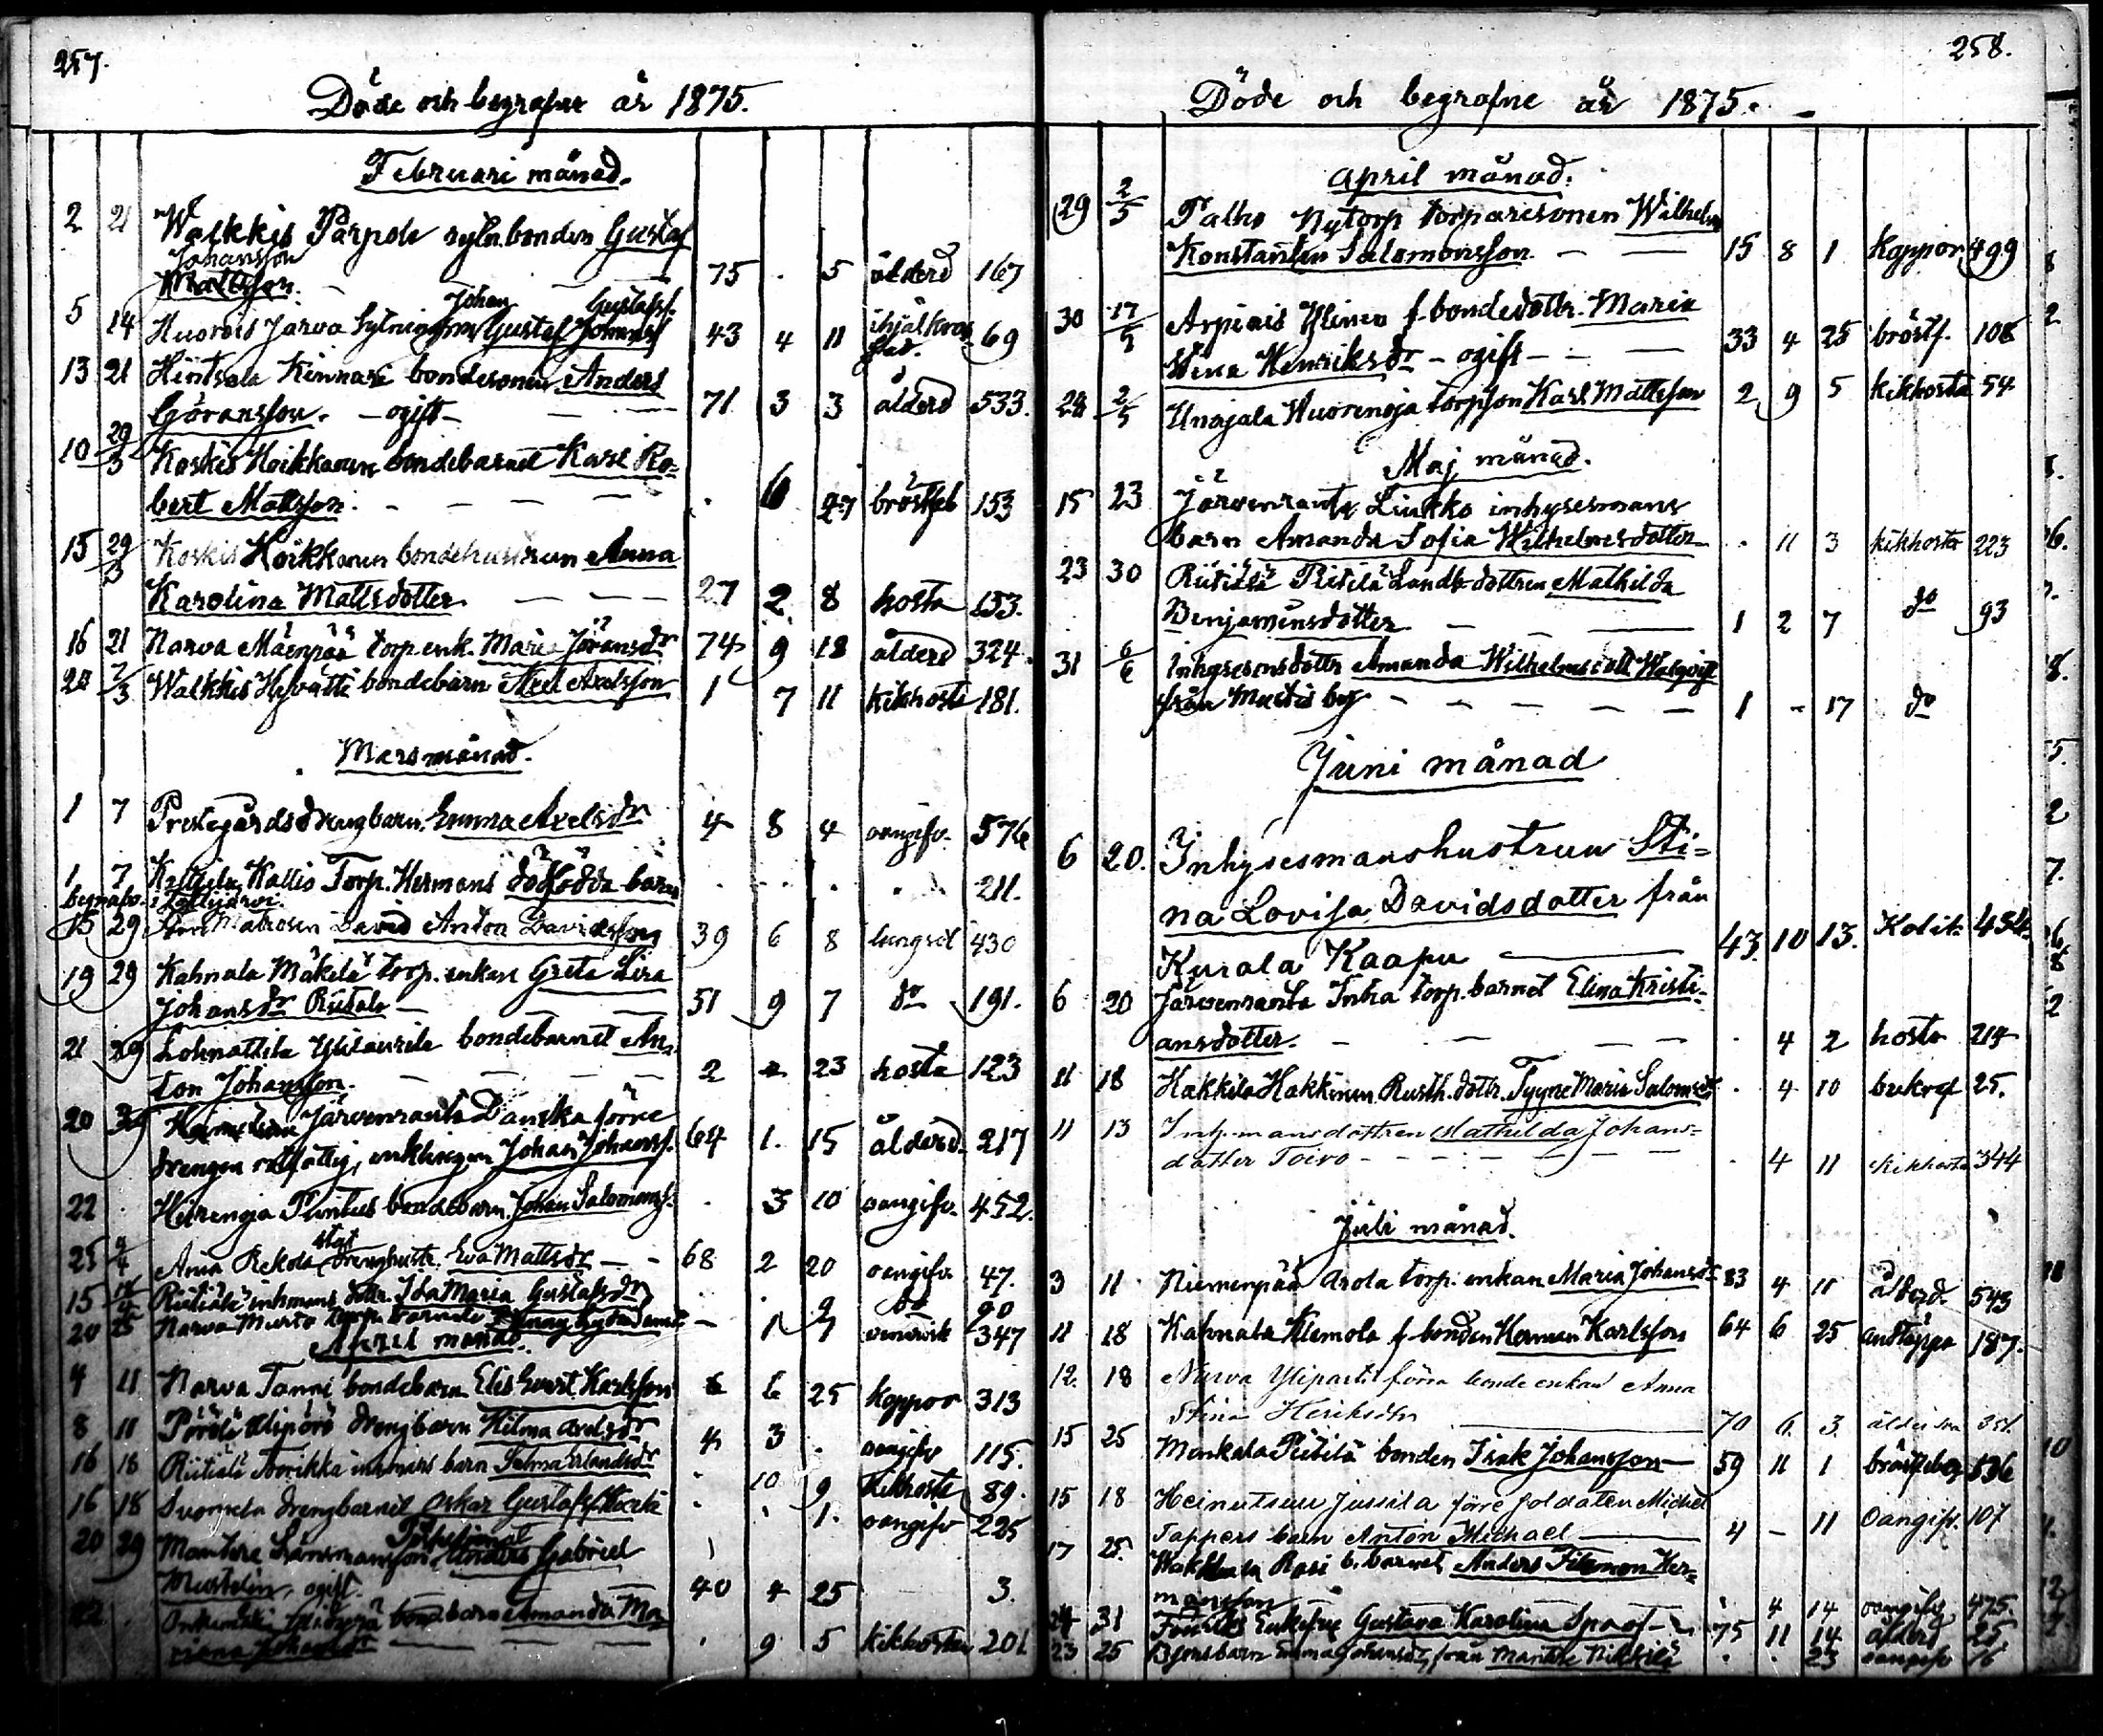 257.
Döde och begrafne år 1875.
Februari månad.
2 21 Walkkis Parpola sytn. bonden Gustaf
Johansson
Mattsson. 75 . 5 ålderd 167
Johan Gustafss.
5 14 Huorois Jarva Sytningsm Gustaf 43 4 11 ihjälkros- 69
sad.
13 21 Hintsala Kinnari bondesonen Anders
Göransson. - ogift - 71 3 3 ålderd 533.
10 29/3 Koskis Hoikkanen bondebarnet Karl Ro=
bert Mattsson. . 6 27 bröstfeb 153
15 29/3 Koskis Hoikkanen bondehustrun Anna
Karolina Mattsdotter 27 2 8 hosta 153.
16 21 Narva Mäenpää torp. enk. Maria Göransdr 74 9 18 ålderd 324.
20 7/3 Walkkis Hyvätti bondebarn Axel Axelsson 1 7 11 kikhosta 181.
Mars månad.
1 7 Prestegårdsdrengbarn. Emma Axelsdr 4 8 4 oangifv. 576
1 7 Kallio Torp. Hermans dödfödda barn . . . . 211.
begrafv. i
15 29 Matrosen David Anton Davidsson 39 6 8 lungsot 430
19 29 Kahnala Mäkelä torp. enkan Greta Lisa
Johansdr Riitala 51 9 7 do 191.
21 29 Lohnattila bondebarnet An=
ton Johansson. 2 2 23 hosta 123
20 29 Järvenranta Danska förre
drengen rotfattig, enklingen Johan Johanss. 64 1. 15 ålderd. 217
22 . Heirenoja Pentus bondebarn Johan Salomonss. . 3 10 oangifv. 452.
25 4/4 Ania Rekola drenghustr. Eva Mattsdr 68 2 20 oangifv 47.
15 Riitiälä inhmans dottr. Ida Maria Gustafsdr . . 9 do 90
20 25 Narva Murto torp. barnet - 1 9 347
April månad.
4 11 Narva Tanni bondebarn Elis Evert Karlsson 6 25 koppor 313
8 11 Pörölä Alipörö drengbarn Hilma Axelsdr 4 3 . oangifv 115.
16 18 Riitiälä Torikka inhmans barn Selma Erlandsdr . 10 9 kikhosta 89.
16 18 Suomela drengbarnet Oskar Gustafss . . 1. oangifv 225
20 29 Mantere Länsmansson Anders Gabriel
Mustelin, ogift. 40 4 25 3.
bondbarn Amanda Ma=
Johansdr . 9 5 kikhosta 201
258.
Döde och begrafne år 1875.
April månad.
29 2/5 Palho Nytorp torparesonen Wilhelm
Konstantin Salomonsson 15 8 1 Koppor 499
30 17/5 Arpiais Yliner f. bondedottr. Maria
Wina Henriksdr - ogift - 33 4 25 bröstf. 108
24 2/5 Unajala Huorenoja torpson Karl Mattsson 2 9 5 kikhosta 54
Maj månad.
15 23 Järvenranta Liukko inhysesmans
barn Amanda Sofia Wilhelmsdotter . 11 3 kikhosta 223
23 30 Riitiälä Pietilä Landb. dottren Mathilda
Benjaminsdotter 1 2 7 do 93
31 6/6 Inhysesmsdottr Amanda Wilhelmsdott Walqvist
från Mustis by 1 - 17 do
Juni månad
6 20. Inhysesmanshustrun Sti=
na Lovisa Davidsdotter från
Kurala Kaapu 43. 10 13. Kolik 454.
6 20 Järvenranta Inha torp. barnet Elina Kristi-
ansdotter. . 4 2 hosta 214
11 18 Hakkila Hakkinen Rusth. dottr. Tyyne Maria Salomonsdr . 4 10 bukref 25.
11 13 Inh. mansdottren Mathilda Johans=
dotter Toivo . 4 11 kikhosta 344
Juli månad.
3 11 Niemenpää Arola torp. enkan Maria Johansdr 83 4 11 ålderd. 543
11 18 Kahnala Klemola f. bonden Herman Karlsson 64 6 25 andtäppa 187.
12. 18 Narva Yliparti förra bonde enkan Anna
Stina Heriksdtr 70 6. 3. ålderdom 351.
15 25 Monkala Pietilä bonden Isak Johansson 59 11 1 bröstfeber 136
15 18 Heinutsuu Jussila förre soldaten Michel
Tappers barn Anton Michael 4 - 11 Oangifv. 107
17 25. Rosi b. barnet Anders Filemon Her=
mansson . 4 14 oangifv 475.
24 31 Enkefru Gustava Karolina Spoof 75 11 14 ålderd 25.
23 25 barn Emma Johansdr, från Mantere Nikkilä . . 23 oangifv 16